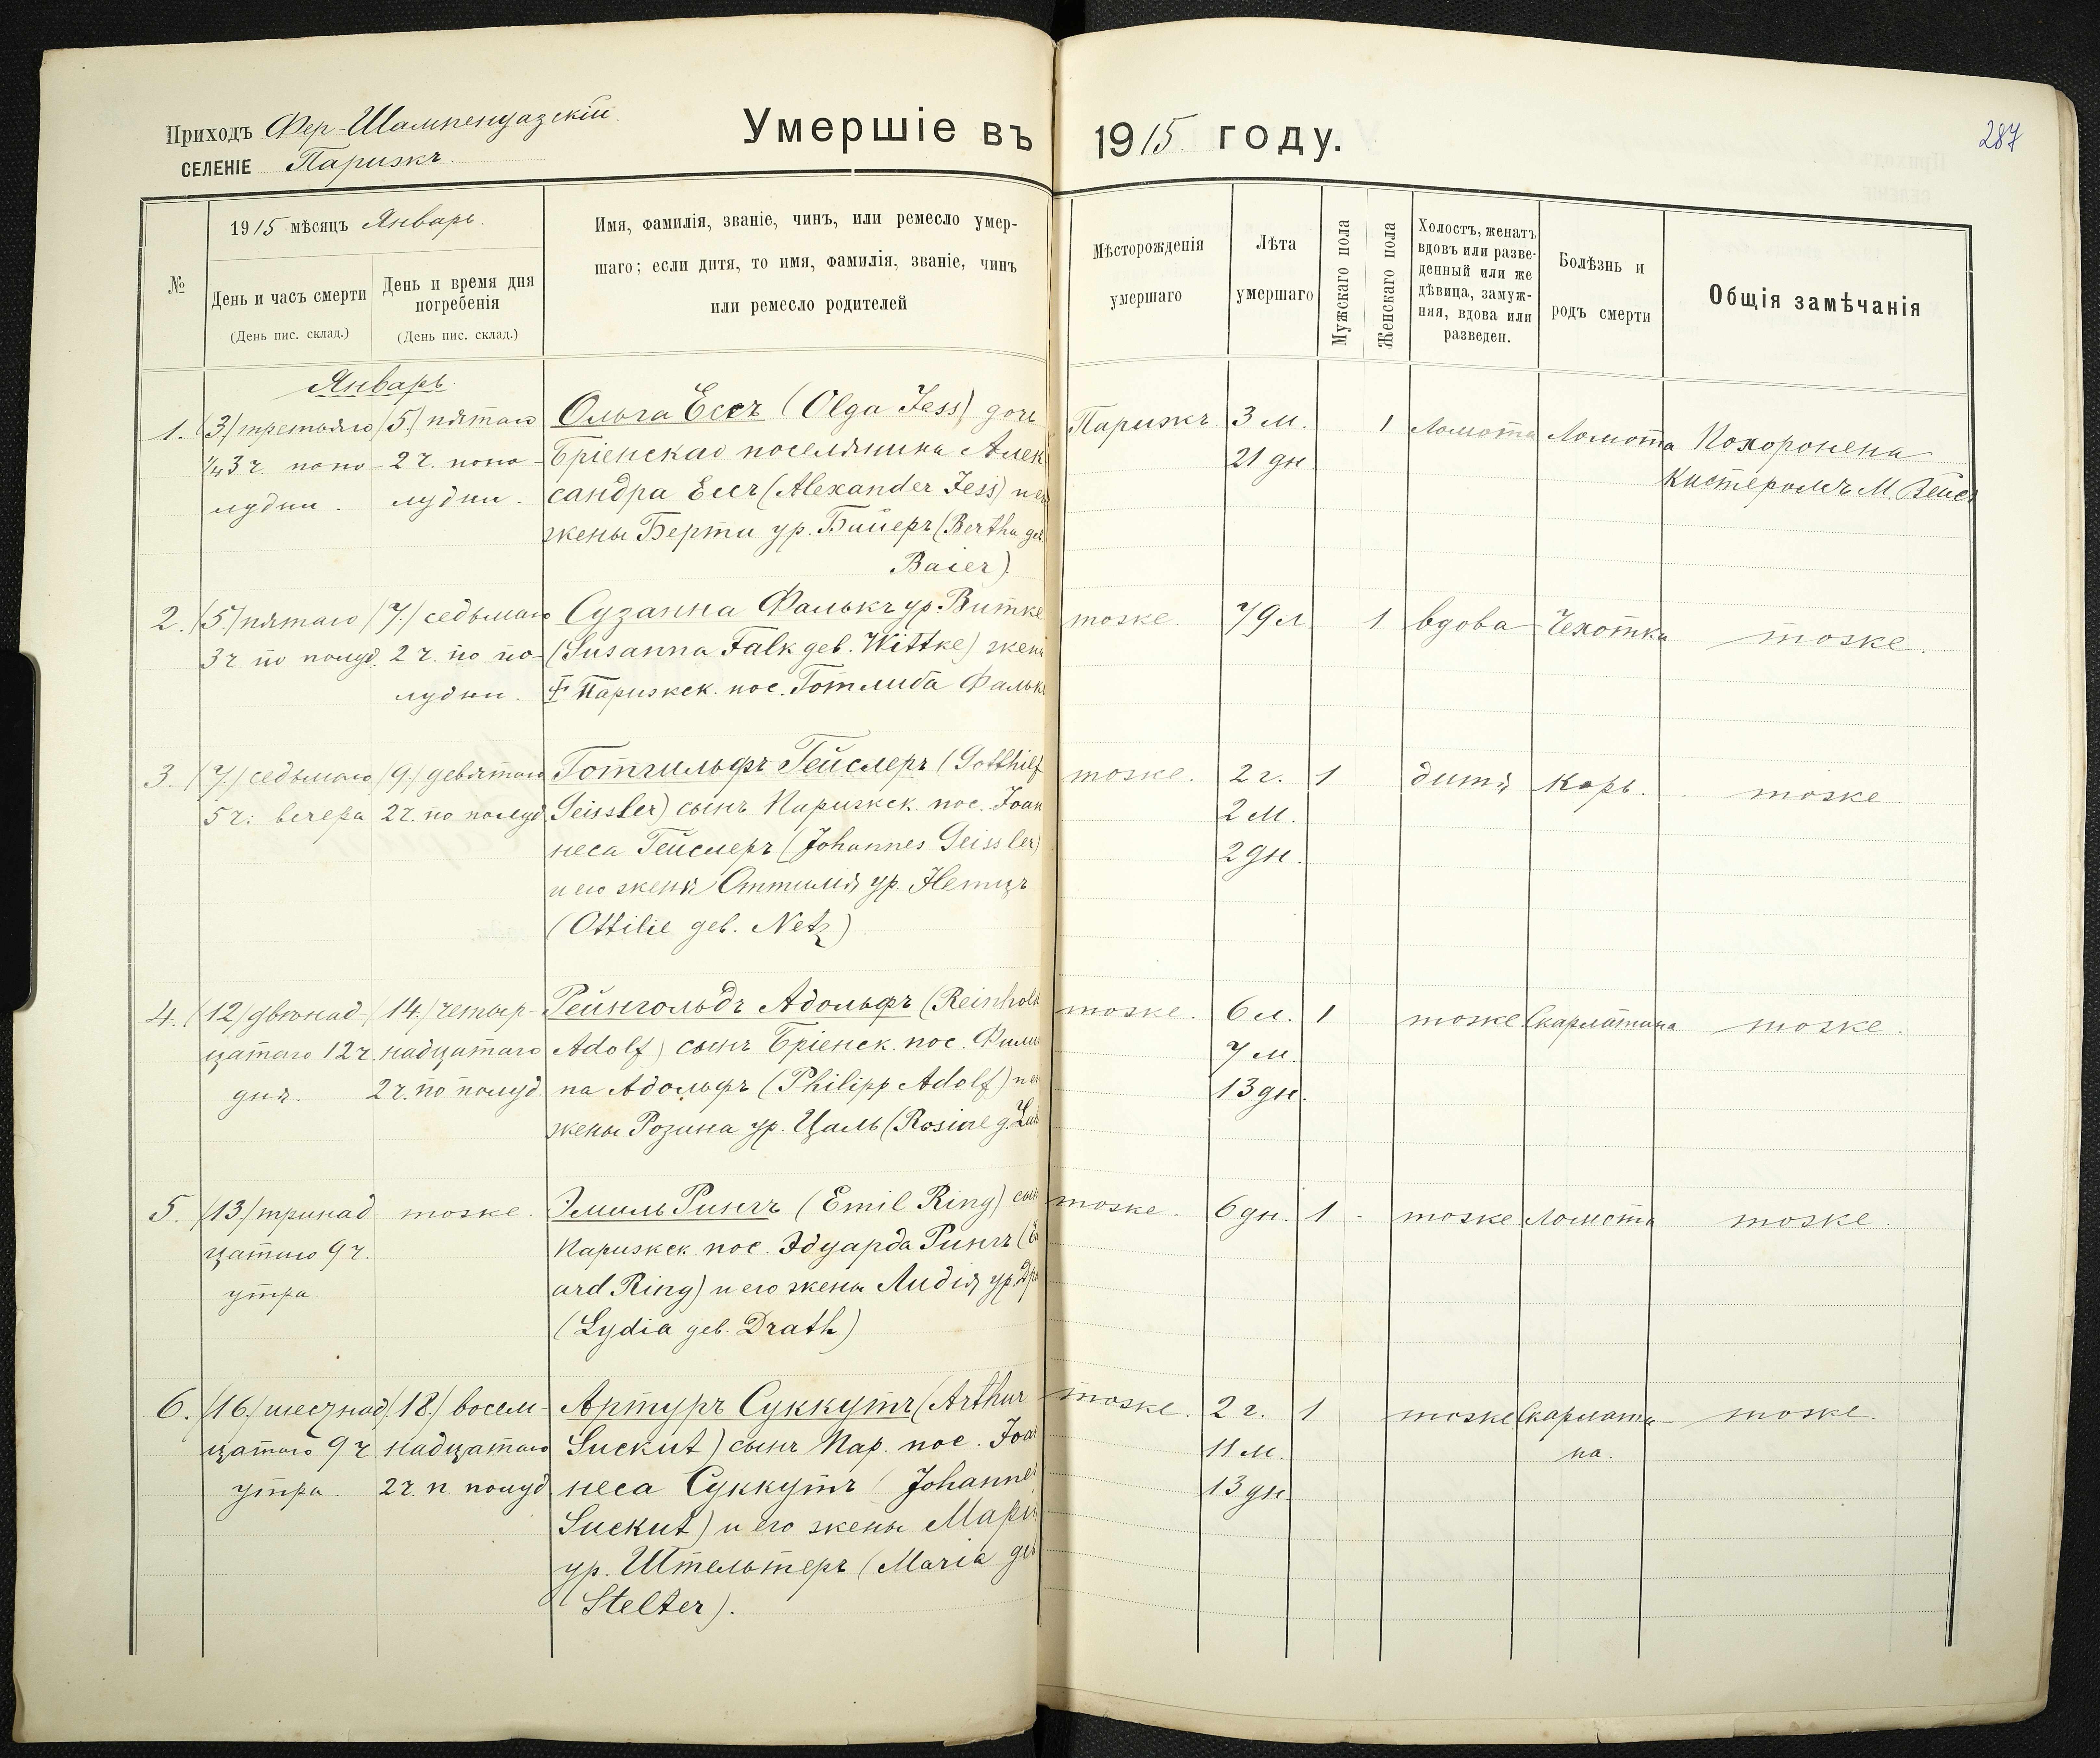 Приходъ Фер-Шампенуазскій
Умершіе въ 1915 году.
287
СЕЛЕНІЕ Парижъ.
№
1915 мѣсяцъ Январь.
День и часъ смерти
(День пис. склад.)
День и время дня
погребенія
(День пис. склад.)
Имя, фамилія, званіе, чинъ, или ремесло умер-
шаго; если дитя, то имя, фамилія, званіе, чинъ
или ремесло родителей
Мѣсторожденія
умершаго
Лѣта
умершаго
Мужскаго пола
Женскаго пола
Холостъ, женатъ
вдовъ или разве-
денный или же
дѣвица, замуж-
няя, вдова или
разведен.
Болѣзнь и
родъ смерти
Общія замѣчанія
Январь.
1.
(3) третьяго
¼3 ч. попо-
лудни.
(5.) пятаго
2 ч. попо-
лудни.
Ольга Ессъ (Olga Jess) доч
Бріенскаго поселянина Алек
сандра Ессъ (Alexander Jess) и его
жены Берты ур. Байеръ (Bertha geb.
Baier).
Парижъ
3 м.
21 дн.
1
Ломота
Ломота
Похоронена
Кистеромъ М. Вейс
2.
(5.) пятаго
3 ч по полуд.
(7.) седьмаго
2 ч. по по-
лудни.
Сузанна Фалькъ ур. Витке
(Susanna Falk geb. Wittke) жена
Парижск. пос. Готлиба Фальк
тоже.
79 л
1
вдова
Чехотка
тоже.
3.
(7.) седьмаго
5 ч. вечера
(9.) девятаго
2 ч. по полуд
Готгильфъ Гейслеръ (Gotthilf
Geissler) сынъ Парижск. пос. Іоан
неса Гейслеръ (Johannes Geissler)
и его жены Оттилія ур. Нетцъ
(Ottilie geb. Netz)
тоже.
2 г.
2 м.
2 дн.
1
дитя
Корь.
тоже.
4.
(12) двѣнад
цатаго 12 ч.
дня.
(14.) четыр-
надцатаго
2 ч. по полуд.
Рейнгольдъ Адольфъ (Reinhold
Adolf) сынъ Бріенск. пос. Филип
па Адольфъ (Philipp Adolf) и его
жены Розина ур. Цаль (Rosine g.
тоже.
6 л.
7 м.
13 дн.
1
тоже
Скарлатина
тоже.
5.
(13) тринад
цатаго 9 ч.
утра.
тоже.
Эмиль Рингъ (Emil Ring) сын
Парижск. пос. Эдуарда Рингъ (Ed
ard Ring) и его жены Лидія ур. Др
(Lydia geb. Drath)
тоже.
6 дн.
1
тоже
Ломота
тоже.
6.
(16.) шестнад
цатаго 9 ч
утра.
(18.) восем-
надцатаго
2 ч. п. полуд
Артуръ Суккутъ (Arthur
Suckut) сынъ Пар. пос. Іоа
неса Суккутъ (Johannes
Suckut) и его жены Мари
ур. Штельтеръ (Maria geb
Stelter).
тоже.
2 г.
11 м.
13 дн.
1
тоже
Скарлати-
на.
тоже.